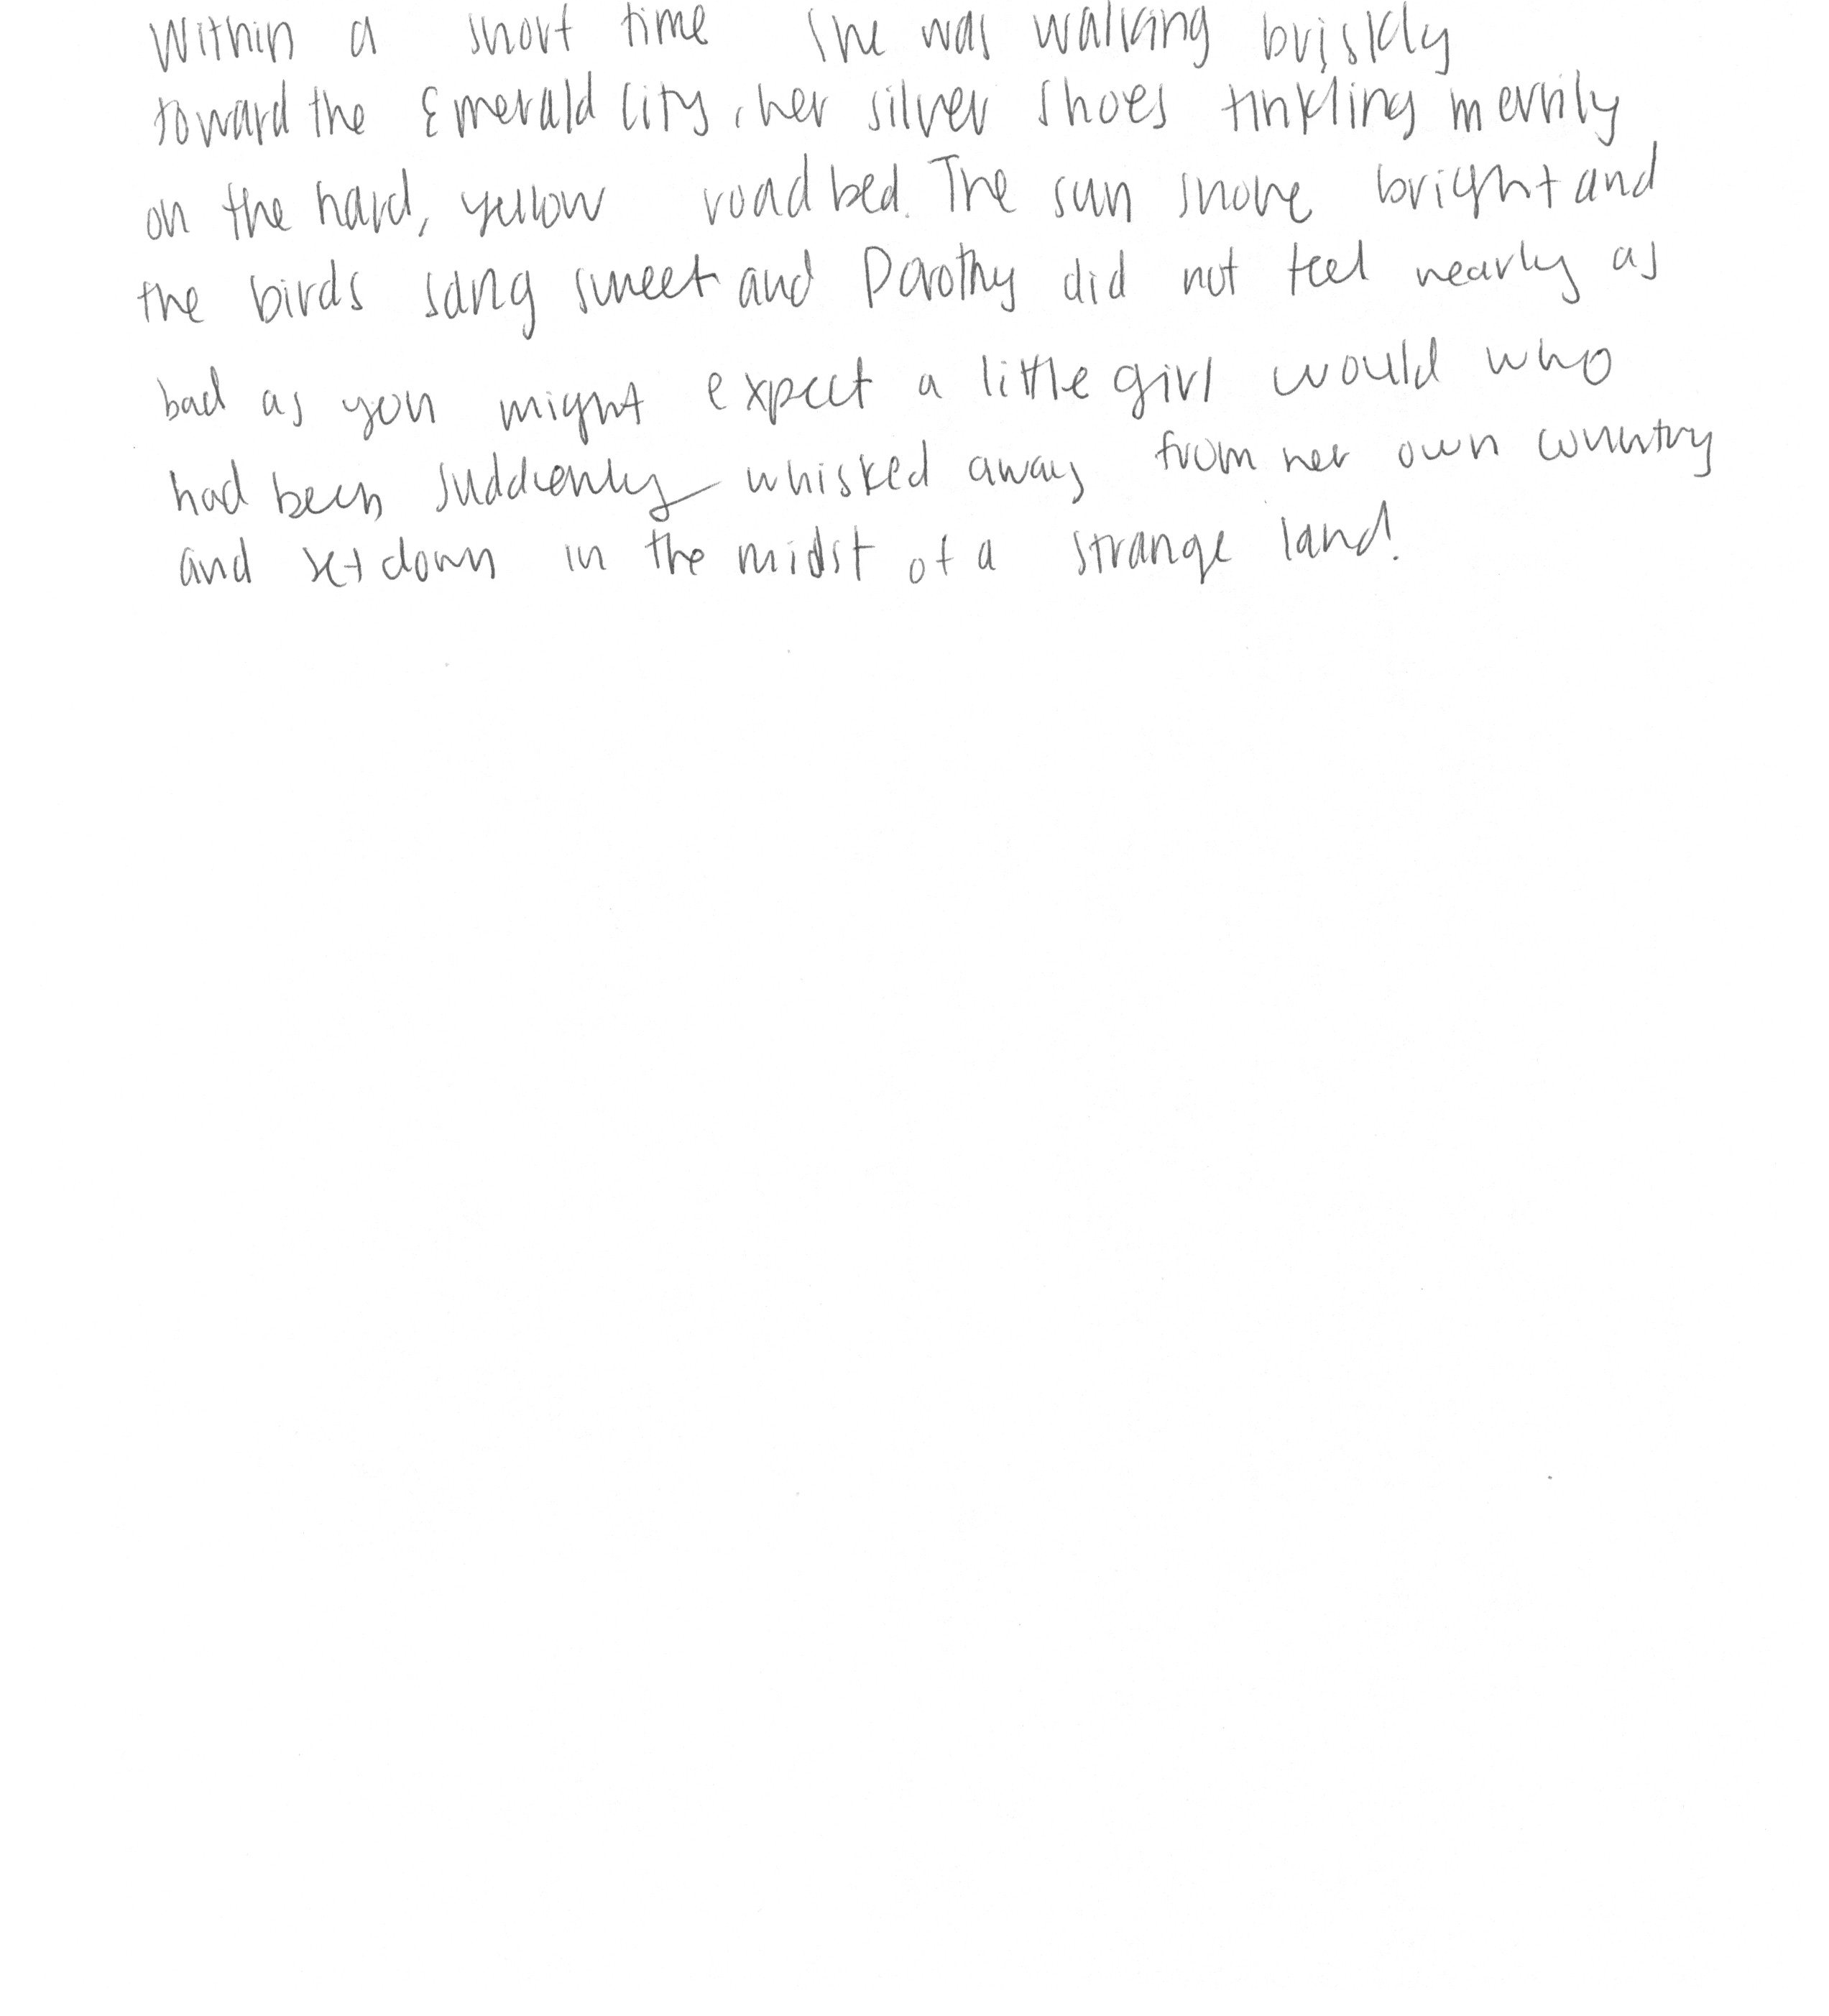 Within a short time she was walking briskly
toward the Emerald City, her silver shoes tinkling merrily
on the hard, yellow roadbed. The sun shone bright and
the birds sang sweet and Dorothy did not feel nearly as
bad as you might expect a little girl would who
had been suddenly whisked away from her own country
and set down in the midst of a strange land.